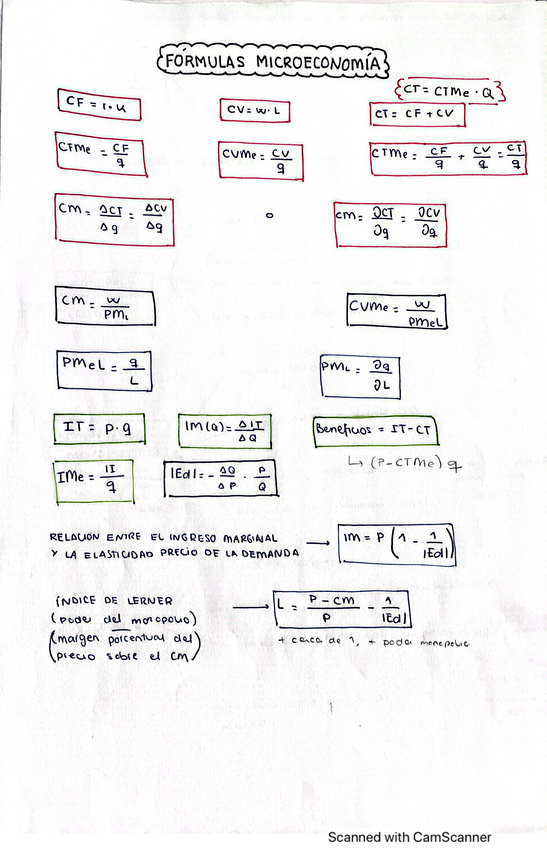 FÓRMULAS MICROECONOMÍA
CT = CTMe · Q
CF = r · K
CV = w · L
CT = CF + CV
CFMe = CF/q
CVMe = CV/q
CTMe = CF/q + CV/q = CT/q
CM = ΔCT/Δq = ΔCV/Δq
o
CM = ∂CT/∂q = ∂CV/∂q
CM = w/PML
CVMe = w/PMeL
PMeL = q/L
PML = ∂q/∂L
IT = P · q
IM(Q) = ΔIT/ΔQ
Beneficios = IT - CT
↳ (P - CTMe) q
IMe = IT/q
|Ed| = - ΔQ/ΔP · P/Q
RELACIÓN ENTRE EL INGRESO MARGINAL
Y LA ELASTICIDAD PRECIO DE LA DEMANDA → IM = P (1 - 1/|Ed|)
ÍNDICE DE LERNER → L = P - CM/P - 1/|Ed|
(poder del monopolio)
(margen porcentual del
precio sobre el CM)
+ cerca de 1, + poder monopolio
Scanned with CamScanner